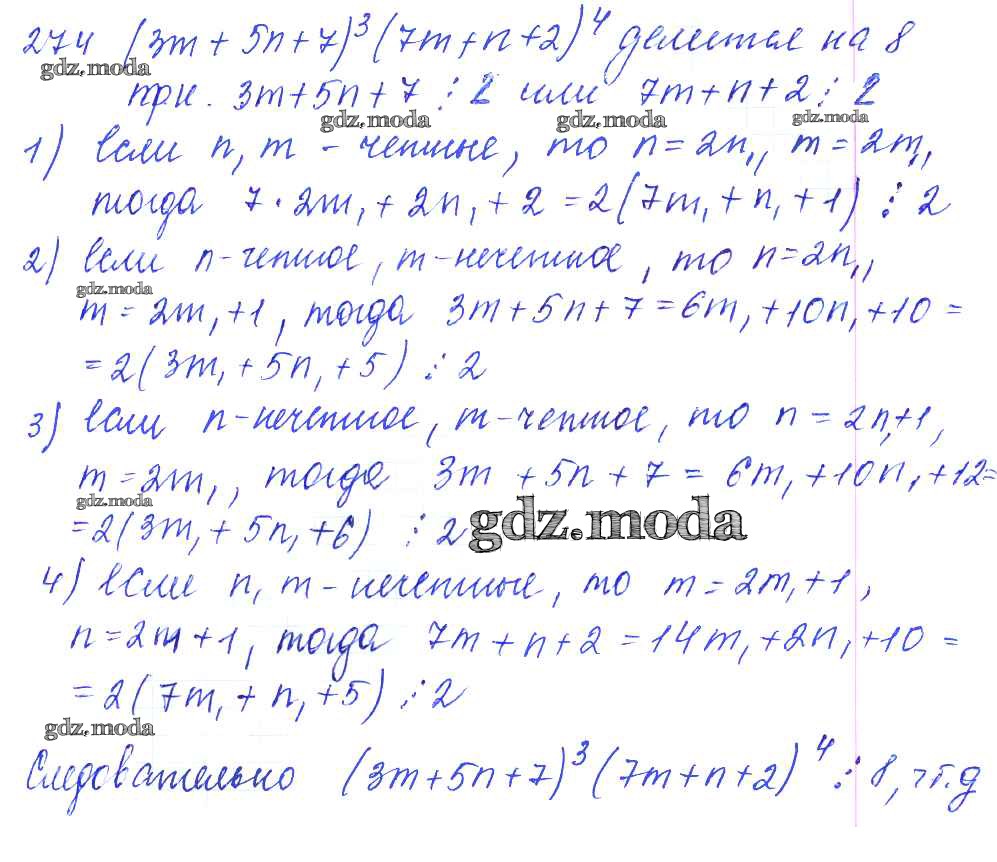 274 (3m + 5n + 7)³ (7m + n + 2)⁴ делится на 8
gdz.moda
при. 3m + 5n + 7 ⋮ 2 или 7m + n + 2 ⋮ 2
gdz.moda gdz.moda gdz.moda
1) если n, m - четные, то n = 2n₁, m = 2m₁,
тогда 7 · 2m₁ + 2n₁ + 2 = 2(7m₁ + n₁ + 1) ⋮ 2
2) если n - четное, m - нечетное, то n = 2n₁,
gdz.moda
m = 2m₁ + 1, тогда 3m + 5n + 7 = 6m₁ + 10n₁ + 10 =
= 2(3m₁ + 5n₁ + 5) ⋮ 2
3) если n - нечетное, m - четное, то n = 2n₁ + 1,
m = 2m₁, тогда 3m + 5n + 7 = 6m₁ + 10n₁ + 12 =
gdz.moda
= 2(3m₁ + 5n₁ + 6) ⋮ 2
gdz.moda
4) если n, m - нечетные, то m = 2m₁ + 1,
n = 2m + 1, тогда 7m + n + 2 = 14m₁ + 2n₁ + 10 =
= 2(7m₁ + n₁ + 5) ⋮ 2
gdz.moda
Следовательно (3m + 5n + 7)³ (7m + n + 2)⁴ ⋮ 8, чт.д